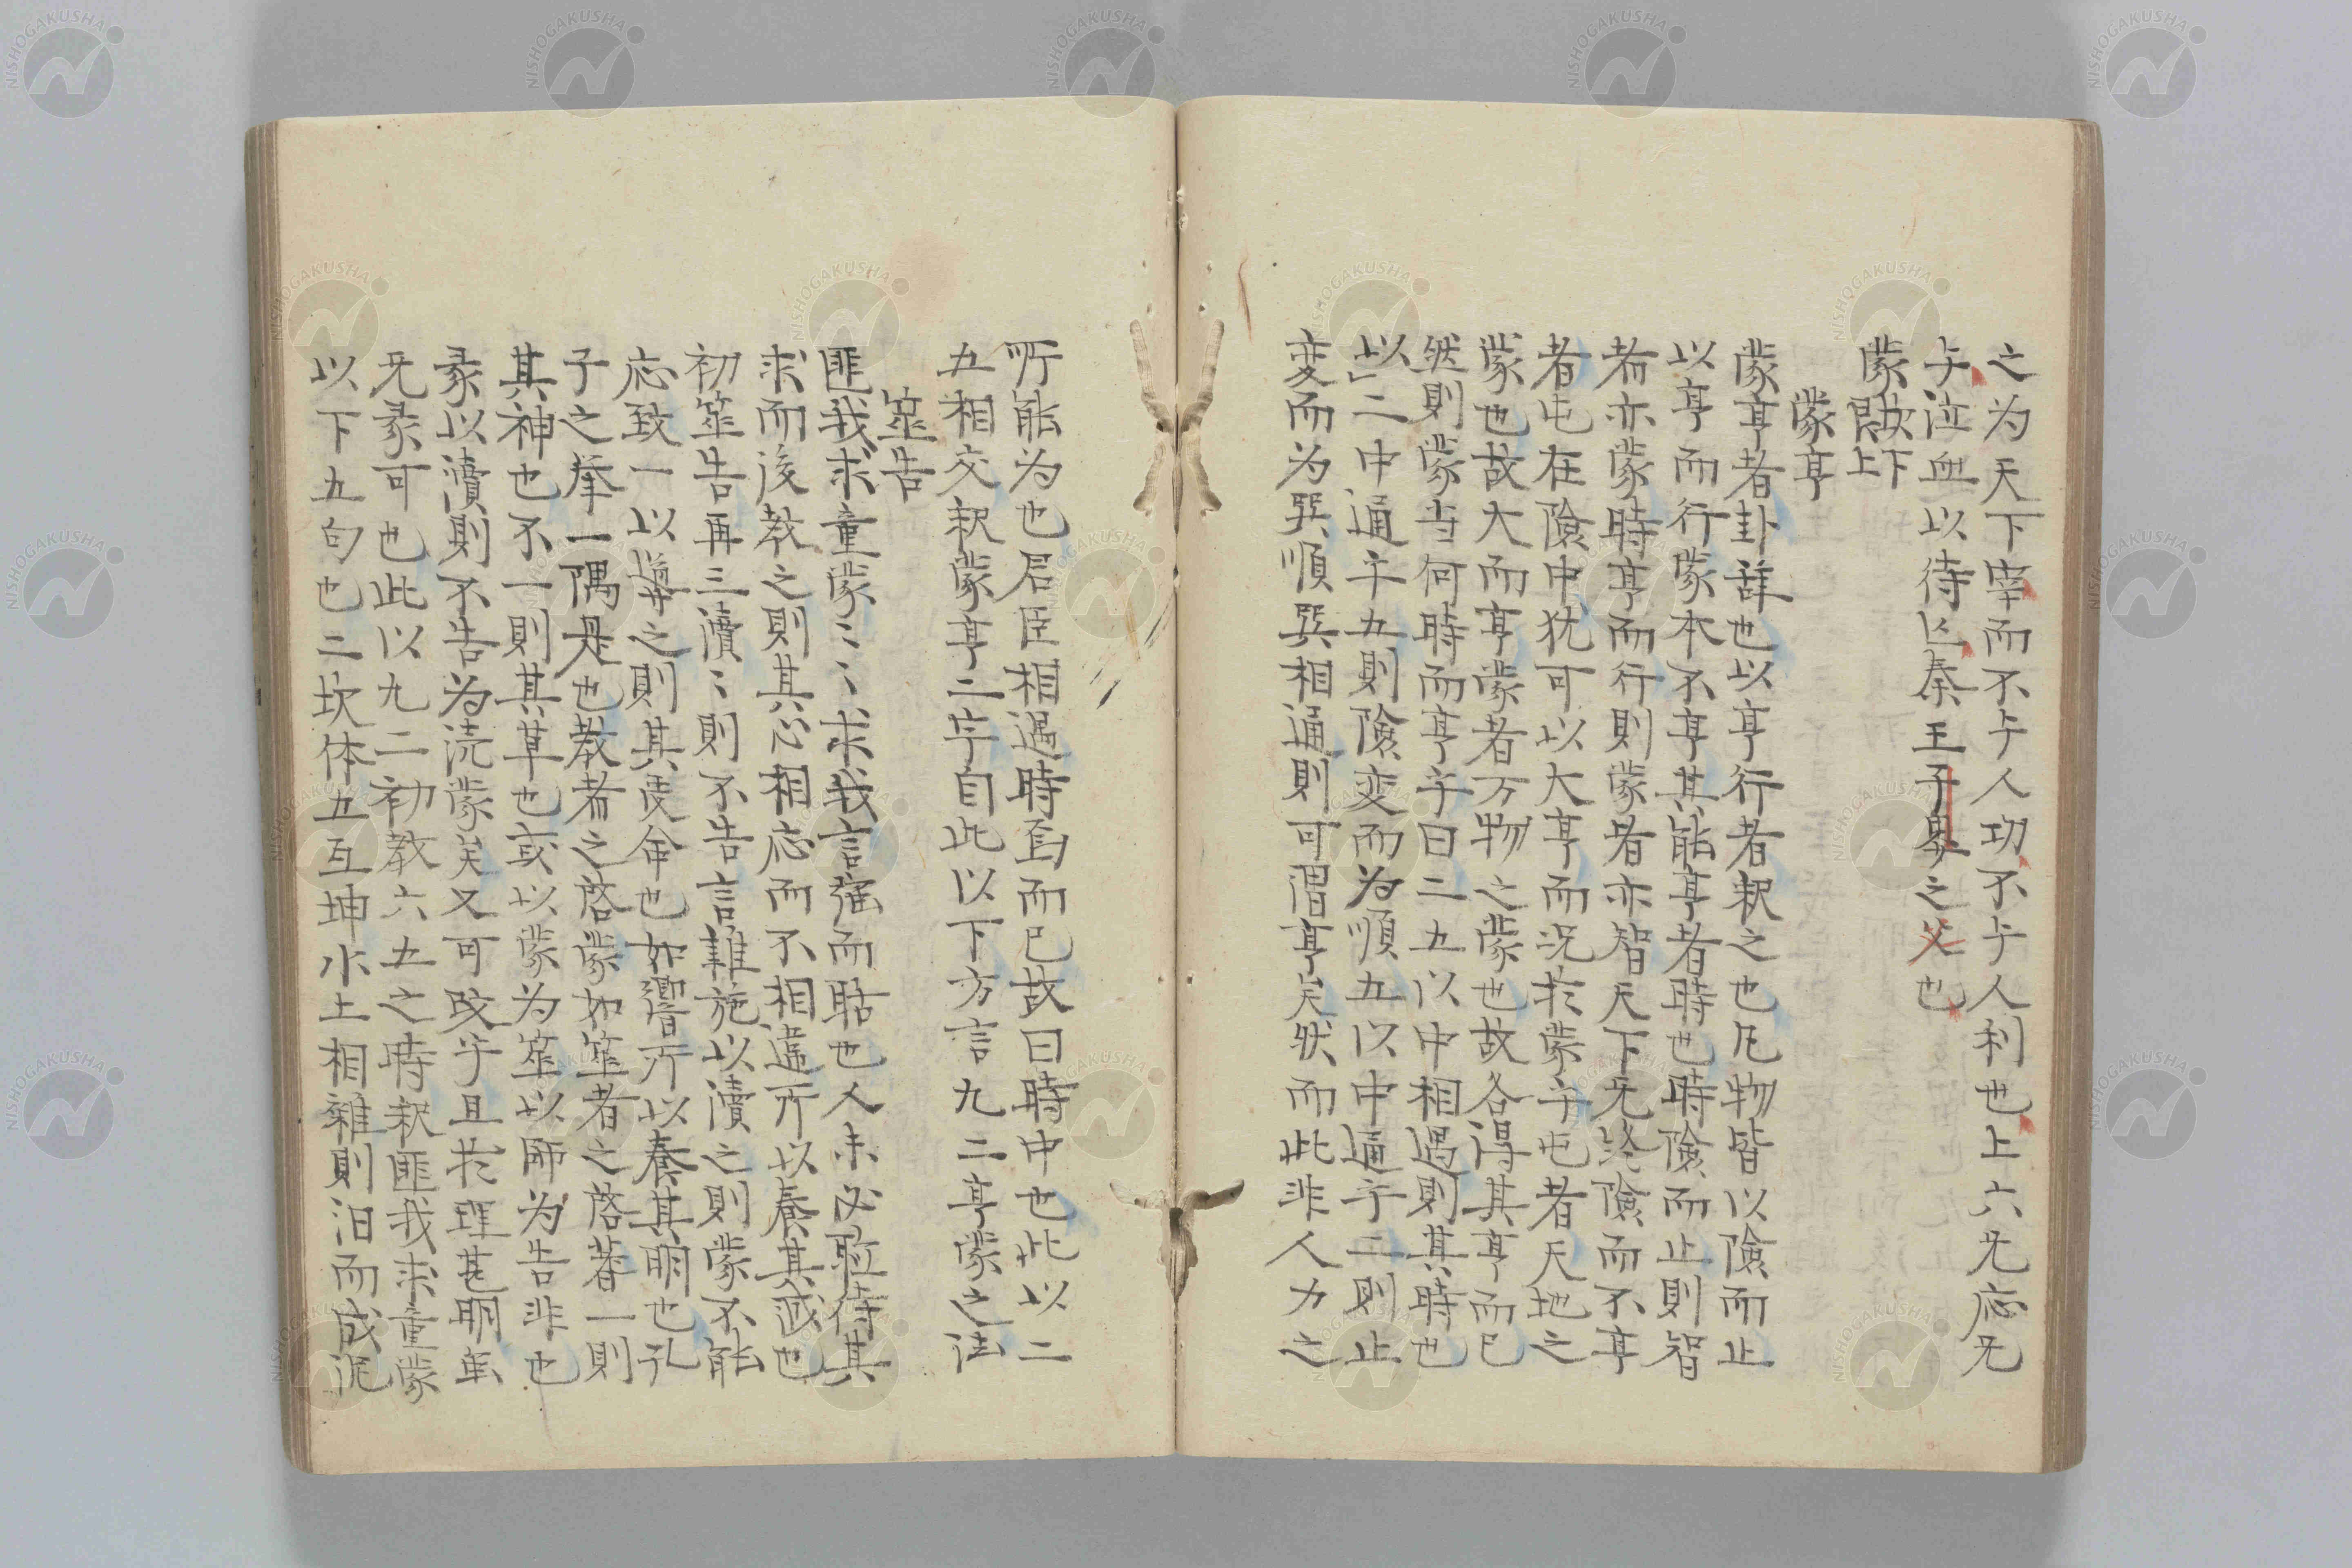 之为天下宰而不与人功不与人利也上六无应无
与泣血以待亡秦王子嬰之父也
蒙 艮上 坎下
蒙亨
蒙亨者卦辞也以亨行者釈之也凡物皆以險而止
以亨而行蒙本不亨其能亨者時也時險而止則智
者亦蒙時亨而行則蒙者亦智天下无終險而不亨
者屯在險中犹可以大亨而况於蒙乎屯者天地之
蒙也故大而亨蒙者万物之蒙也故各得其亨而已
然則蒙当何時而亨乎曰二五以中相遇則其時也
以二中通乎五則險变而为順五以中通乎二則止
变而为巽順巽相通則可谓亨矣然而此非人力之
所能为也君臣相遇時焉而已故曰時中也此以二
五相交釈蒙亨二乎自此以下方言九二亨蒙之法
筮告
匪我求童蒙〻〻求我言强而聒也人未必聽待其
求而後教之則其心相应而不相違所以養其誠也
初筮告再三瀆〻則不告言雜施以瀆之則蒙不能
应致一以導之則其受命也如響所以養其明也孔
子之挙一隅是也教者之啓蒙如筮者之啓蓍一則
其神也不一則其草也或以蒙为筮以師为告非也
彖以瀆則不告为瀆蒙矣又可改乎且於理甚明虽
无彖可也此以九二初教六五之時釈匪我求童蒙
以下五句也二坎体五互坤水土相雜則汩而成泥